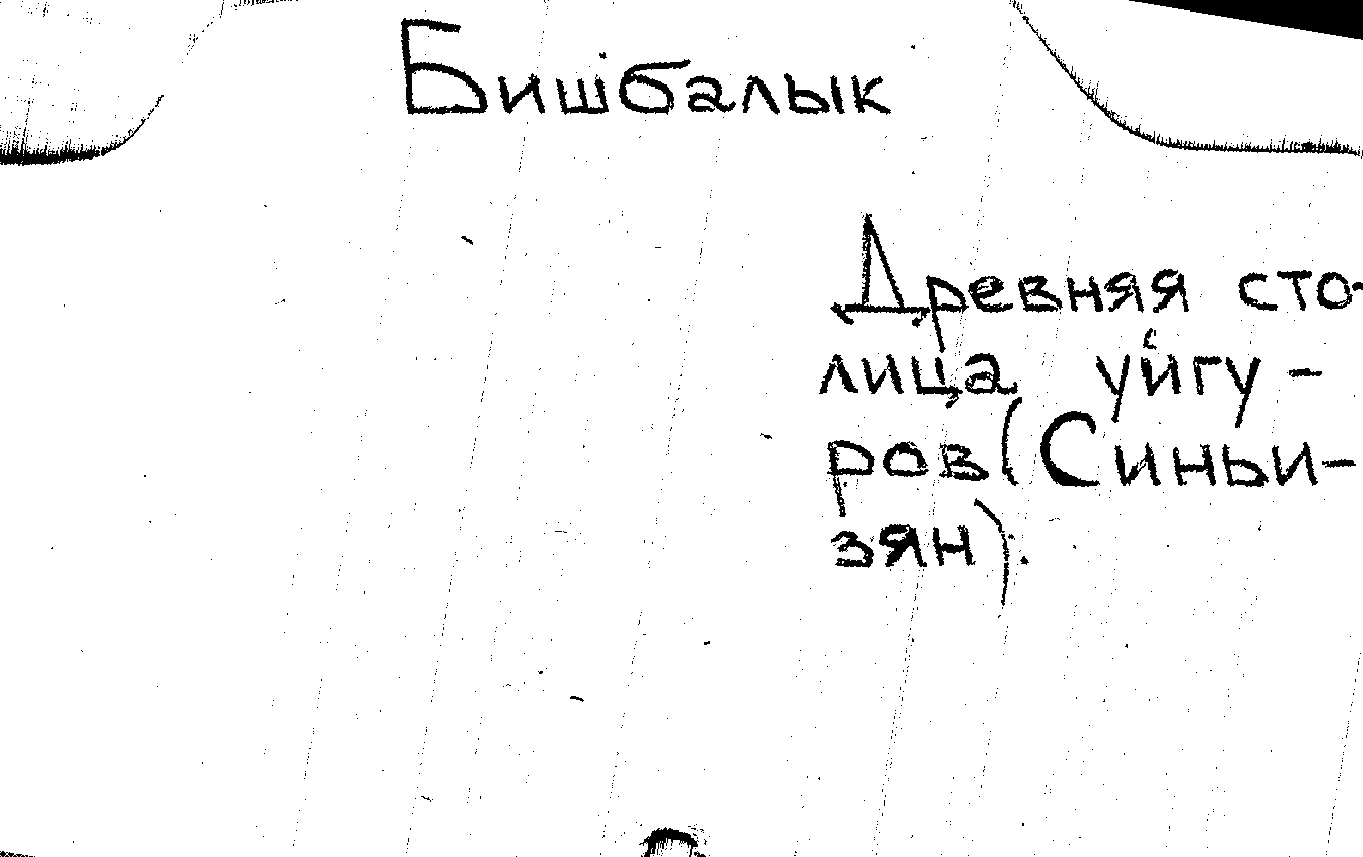 Бишбалык
Древняя сто-
лица уйгу-
ров (Синьи-
зян).